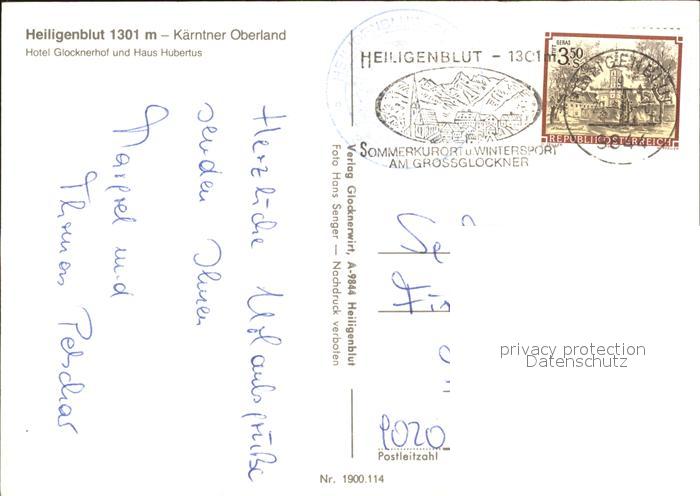 Heiligenblut 1301 m – Kärntner Oberland
Hotel Glocknerhof und Haus Hubertus
Herzliche Urlaubsgrüße
senden Ihnen
und
Thomas
Verlag Glocknerwirt, A-9844 Heiligenblut
Foto Hans Senger — Nachdruck verboten
HEILIGENBLUT – 1301m
SOMMERKURORT u. WINTERSPORT
AM GROSSGLOCKNER
STIFT GERAS
3.50
S
REPUBLIK ÖSTERREICH
HEILIGENBLUT
privacy protection
Datenschutz
9020
Postleitzahl
Nr. 1900.114